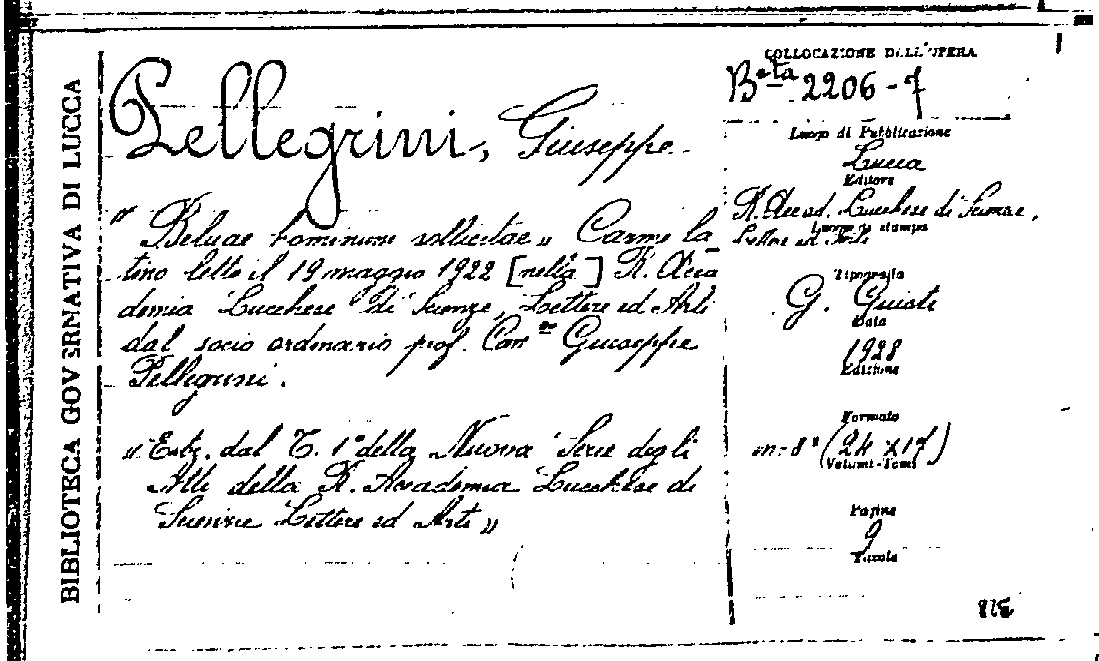 BIBLIOTECA GOVERNATIVA DI LUCCA
Pellegrini, Giuseppe
"Beluae hominum sollicitae" Carme la
tino letto il 19 maggio 1922 [nella] R. Acca
demia Lucchese di Scienze, Lettere ed Arti
dal socio ordinario prof. Can.co Giuseppe
Pellegrini.
"Estr. dal T. 1° della Nuova Serie degli
Atti della R. Accademia Lucchese di
Scienze Lettere ed Arti"
COLLOCAZIONE DELL'OPERA
B.ta 2206-7
Luogo di Pubblicazione
Lucca
Editore
R. Accad. Lucchese di Scienze,
Luogo di stampa
Lettere ed Arti
Tipografia
G. Giusti
Data
1928
Edizione
Formato
in-8° (24 x 17)
(Volumi-Tomi)
Pagine
9
Tavole